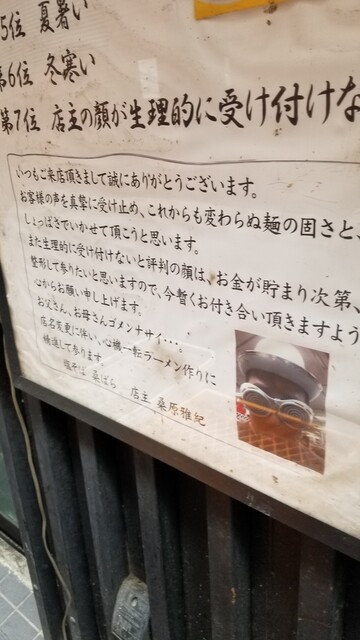 5位 夏暑い
第6位 冬寒い
第7位 店主の顔が生理的に受け付けな
いつもご来店頂きまして誠にありがとうございます。
お客様の声を真摯に受け止め、これからも変わらぬ麺の固さと、
しょっぱさでいかせて頂こうと思います。
また生理的に受け付けないと評判の顔は、お金が貯まり次第、
整形して参りたいと思いますので、今暫くお付き合い頂きますよう
心からお願い申し上げます。
お父さん、お母さんゴメンナサイ・・・。
店名変更に伴い、心機一転ラーメン作りに
精進して参ります。
塩そば 桑ばら 店主 桑原雅紀